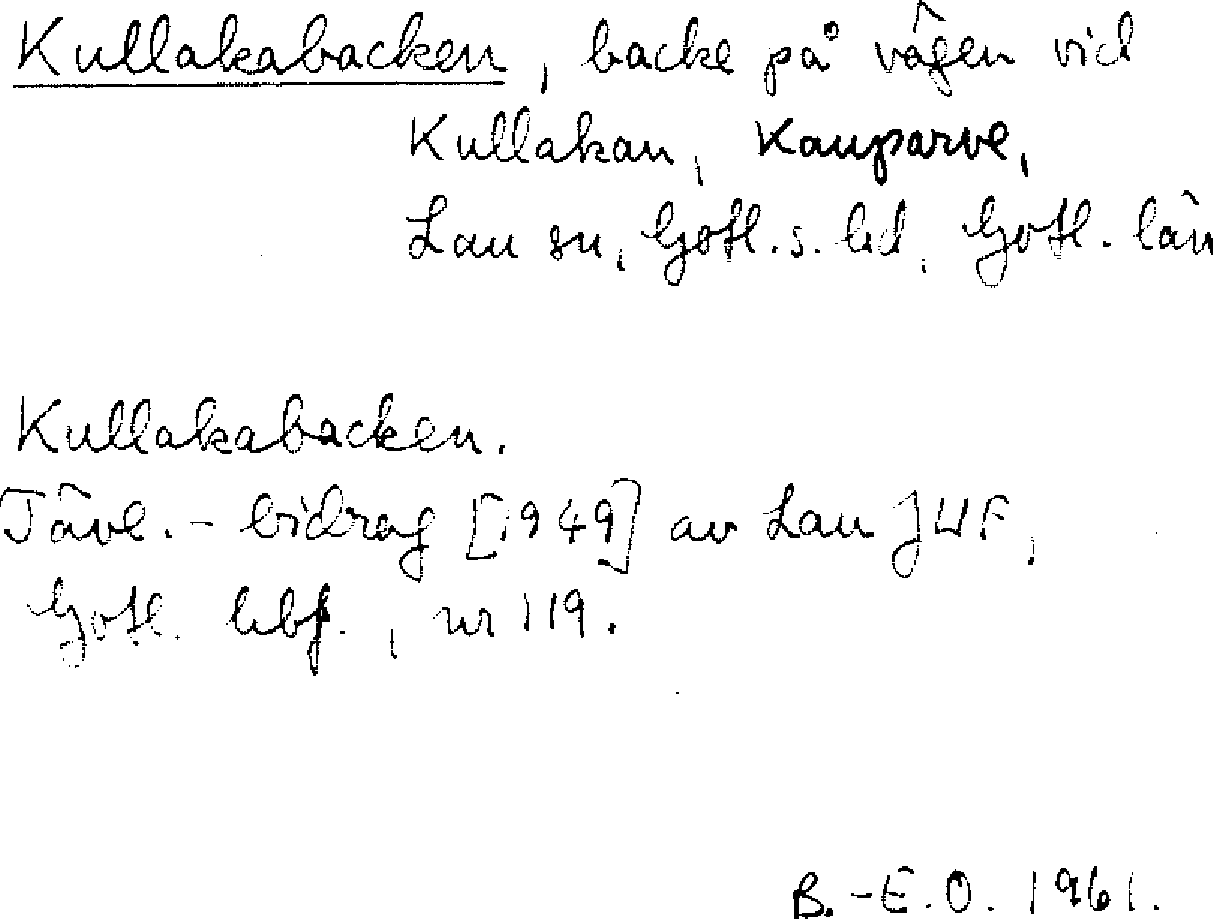 Kullakabacken, backe på vägen vid
Kullakan, Kauparve,
Lau sn, Gotl. s. hd, Gotl. län
Kullakabacken.
Tävl.-bidrag [1949] av Lau JUF,
Gotl. hbf., nr 119.
B.-E.O. 1961.